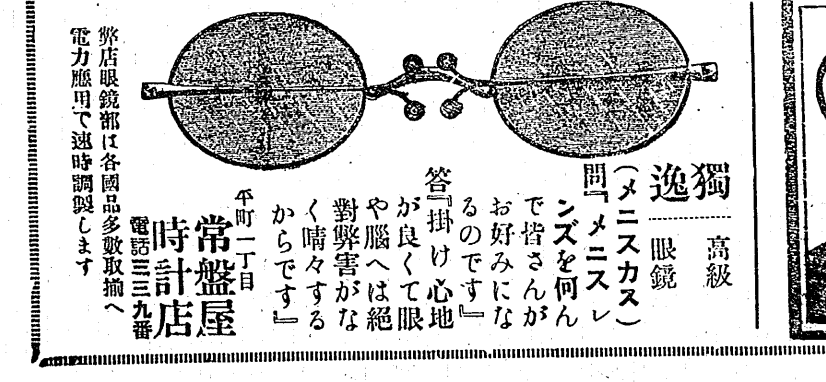 獨逸
高級
眼鏡
(メニスカス)
問『メニスレ
ンズを何ん
で皆さんが
お好みにな
るのです』
答『掛け心地
が良くて眼
や腦へは絕
對弊害がな
く晴々する
からです』
平町一丁目
常盤屋
時計店
電話三三九番
弊店眼鏡部は各國品多數取揃へ
電力應用で速時調製します